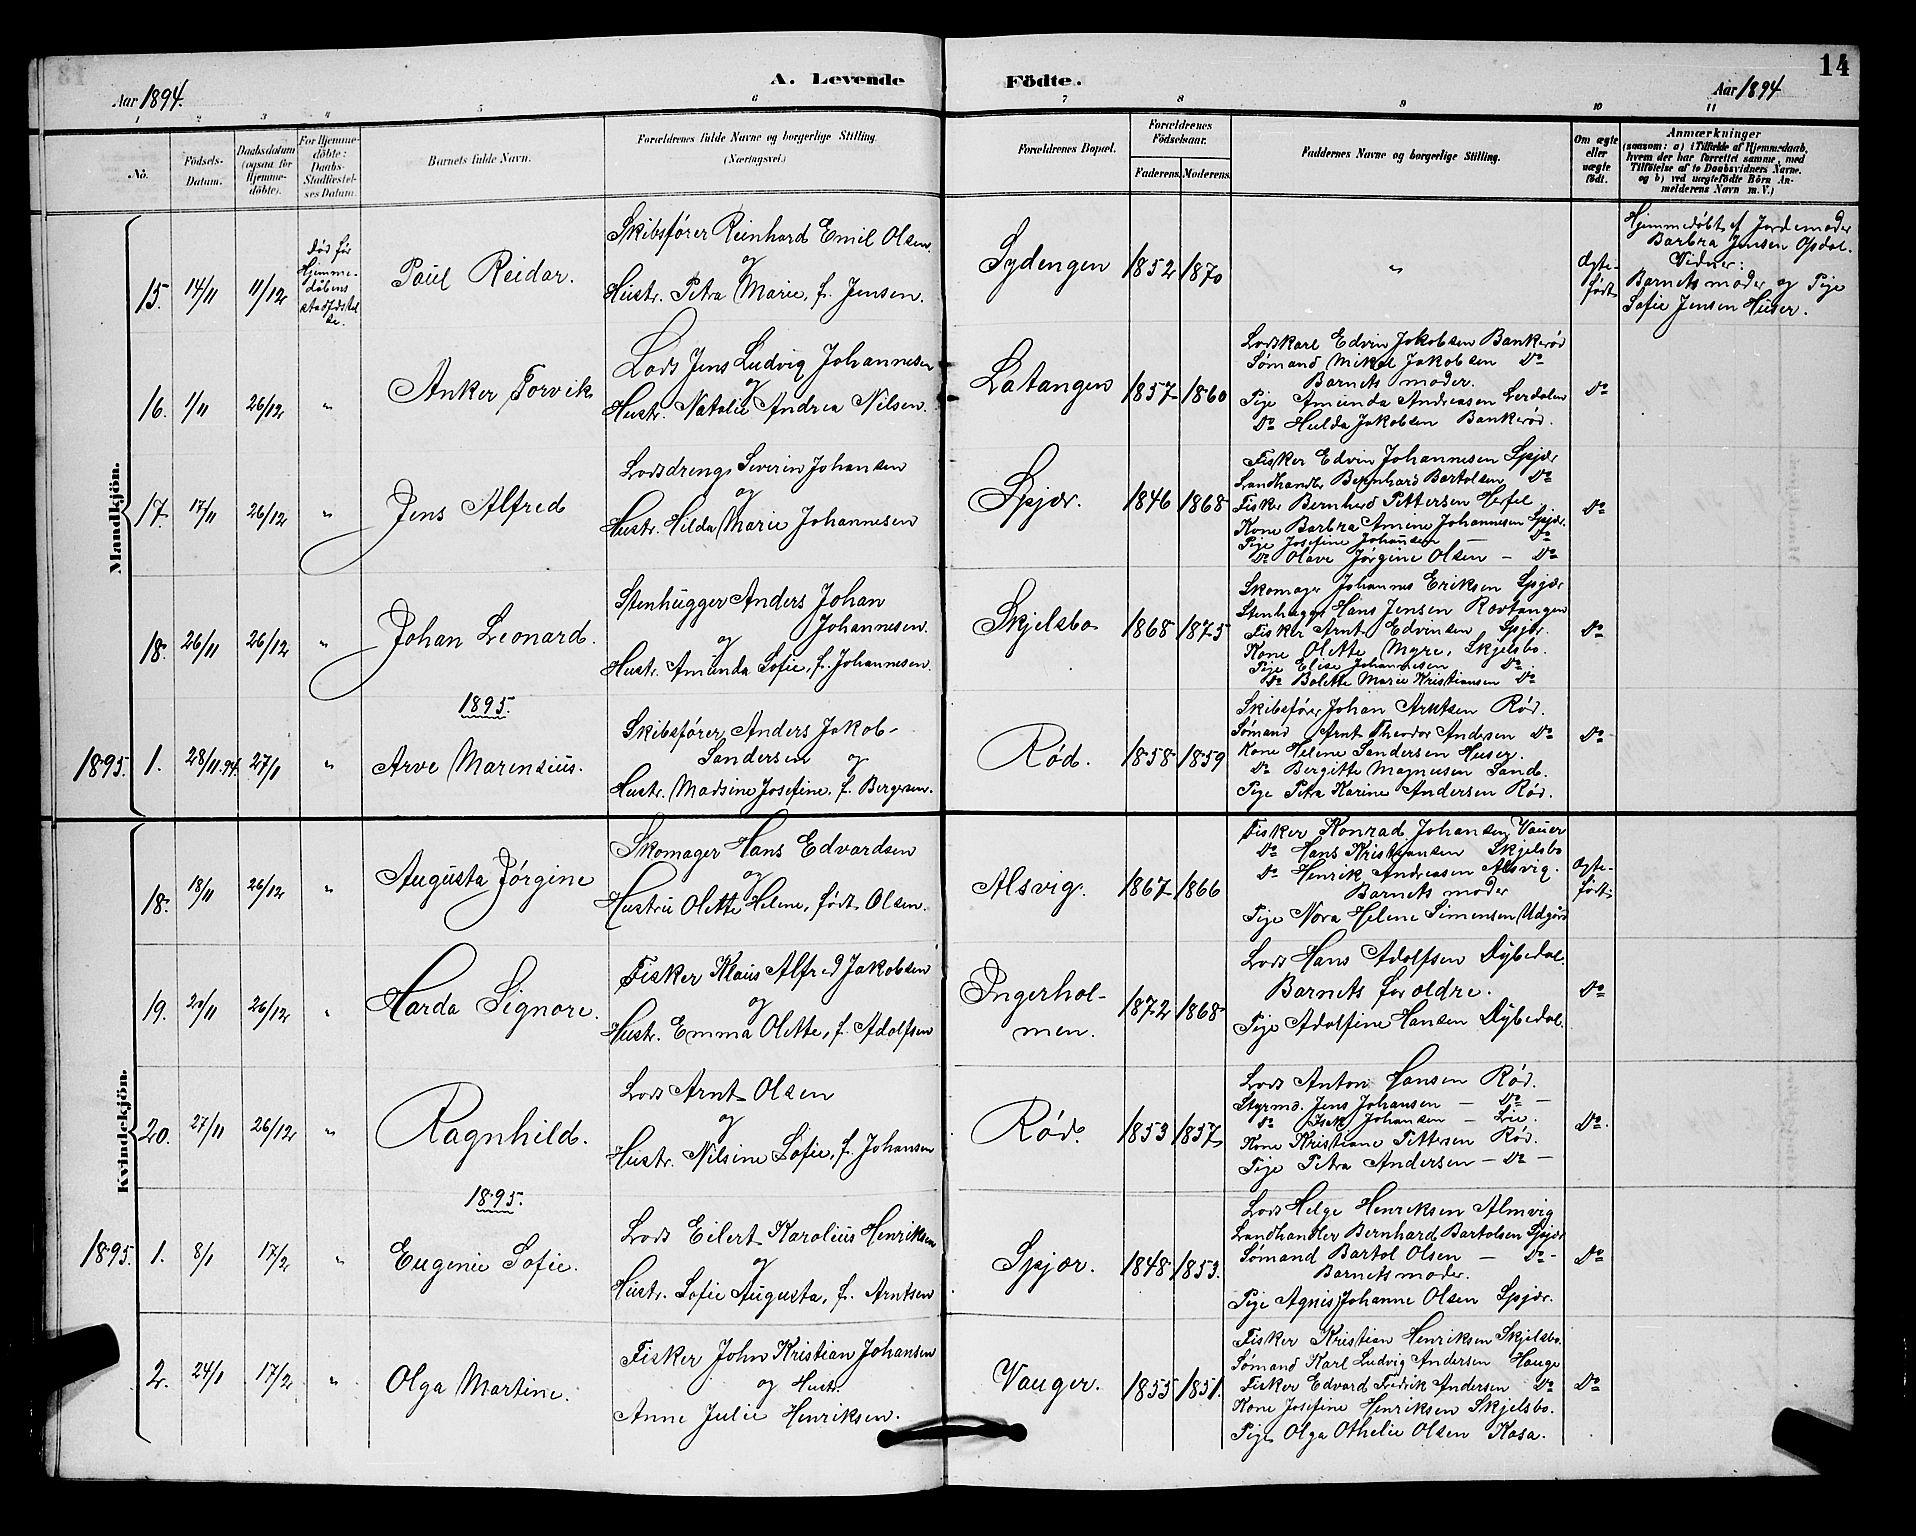 14
A. Levende Födte.
Aar 1894.
Aar 1894
1 2 3 4 5 6 7 8 9 10 11
No.
Födsels-Datum.
Daabsdatum (ogsaa for Hjemmedöbte).
For Hjemmedöbte: Daabs-Stadfæstelses Datum.
Barnets fulde Navn.
Forældrenes fulde Navne og borgerlige Stilling. (Næringsvei.)
Forældrenes Bopæl.
Forældrenes Födselsaar.
Faderens. Moderens.
Faddernes Navne og borgerlige Stilling.
Om ægte eller uægte födt.
Anmærkninger
(saasom: a) i Tilfælde af Hjemmedaab, hvem der har forrettet samme, med Tilföielse af to Daabsvidners Navne. og b) ved uægtefödte Börn Anmelderens Navn m. V.)
Mandkjön.
15. 14/11 11/12
død før
Hjemme-
dåbens
stadfæstel
se.
Paul Reidar.
Skibsfører Reinhard Emil Olsen
og
Hustr. Petra Marie, f. Jensen.
Sydengen 1852 1870
"
Ægte-
født
Hjemmedøbt af Jordemoder
Barbra Jensen Opdal.
Vidner:
Barnets moder og Pige
Sofie Jensen Huser.
16. 1/11 26/12 "
Anker Torvik
Lods Jens Ludvig Johannesen
og
Hustr. Natalie Andrea Nilsen.
Latangen 1857 1860
Lodskarl Edvin Jakobsen Bankerød
Sømand Mikal Jakobsen Do
Barnets moder.
Pige Amunda Andreasen Lerdalen
Do Hulda Jakobsen Bankerød.
Do
17. 17/11 26/12 "
Jens Alfred
Lodsdreng Severin Johansen
og
Hustr. Hilda Marie Johannesen
Spjær. 1846 1868
Fisker Edvin Johannesen Spjær
Landhandl. Bernhard Bartolsen Do
Fisker Bernhard Pettersen Herføl
Kone Barbra Amene Johannesen Spjær.
Pige Josefine Johansen — Do
Do Olave Jørgine Olsen — Do
Do
18. 26/11 26/12 "
Johan Leonard.
Stenhugger Anders Johan
Johannesen.
og
Hustr. Amunda Sofie, f. Johannesen.
Skjelsbo 1868 1875
Skomager Johannes Eriksen Spjær
Stenhugger Hans Jensen Rovtangen
Fisker Arnt Edvinsen Spjær.
Kone Olette Myre, Skjelsbo.
Pige Elise Johannesen Do
Do Bolette Marie Kristiansen Do
Do
1895.
1895. 1. 28/11.94. 27/1 "
Arve Marensius.
Skibsfører Anders Jakob-
Sandersen og
Hustr. Madsine Josefine, f. Bergersen.
Rød. 1858 1859
Skibsfører Johan Arntsen Rød.
Sømand Arnt Theodor Andersen Do
Kone Helene Sandersen Huser.
Do Bergitte Magnusen Sand.
Pige Petra Karine Andersen Rød.
Do
Kvindekjön.
18. 18/11 26/12 "
Augusta Jørgine
Skomager Hans Edvardsen
og
Hustru Olette Helene, født Olsen.
Alsvig. 1867 1866
Fisker Konrad Johansen Vauer
Do Hans Kristiansen Skjelsbo
Do Henrik Andreasen Alsvig.
Barnets moder
Pige Nora Helene Simensen Udgård
Ægte-
født
19. 20/11 26/12 "
Harda Signore.
Fisker Klaus Alfred Jakobsen
og
Hustr. Emma Olette, f. Adolfsen
Ingerhol-
men. 1872 1868
Lods Hans Adolfsen Dybedal.
Barnets forældre.
Pige Adolfine Hansen Dybedal.
Do
20. 27/11 26/12 "
Ragnhild.
Lods Arnt Olsen
og
Hustr. Nilsine Sofie, f. Johansen
Rød. 1853 1857
Lods Anton Hansen Rød.
Styrmd. Jens Johansen — Do —
Do Isak Johansen — Lie.
Kone Kristiane Pettersen Rød.
Pige Petra Andersen — Do —
Do.
1895.
1895. 1. 8/1 17/2 "
Eugenie Sofie.
Lods Eilert Karolius Henriksen
og
Hustr. Sofie Augusta, f. Arntsen
Spjær. 1848 1853.
Lods Helge Henriksen Almvig
Landhandler Bernhard Bartolsen Spjær
Sømand Bartol Olsen — Do —
Barnets moder.
Pige Agnis Johanne Olsen Spjær.
Do
2. 24/1 17/2 "
Olga Martine.
Fisker John Kristian Johansen
og Hustr.
Anne Julie Henriksen.
Vauger. 1855 1851.
Fisker Kristian Henriksen Skjelsbo.
Sømand Karl Ludvig Andersen Hauge
Fisker Edvard Fredrik Andersen Do
Kone Josefine Henriksen Skjelsbo.
Pige Olga Othelie Olsen Kasa.
Do